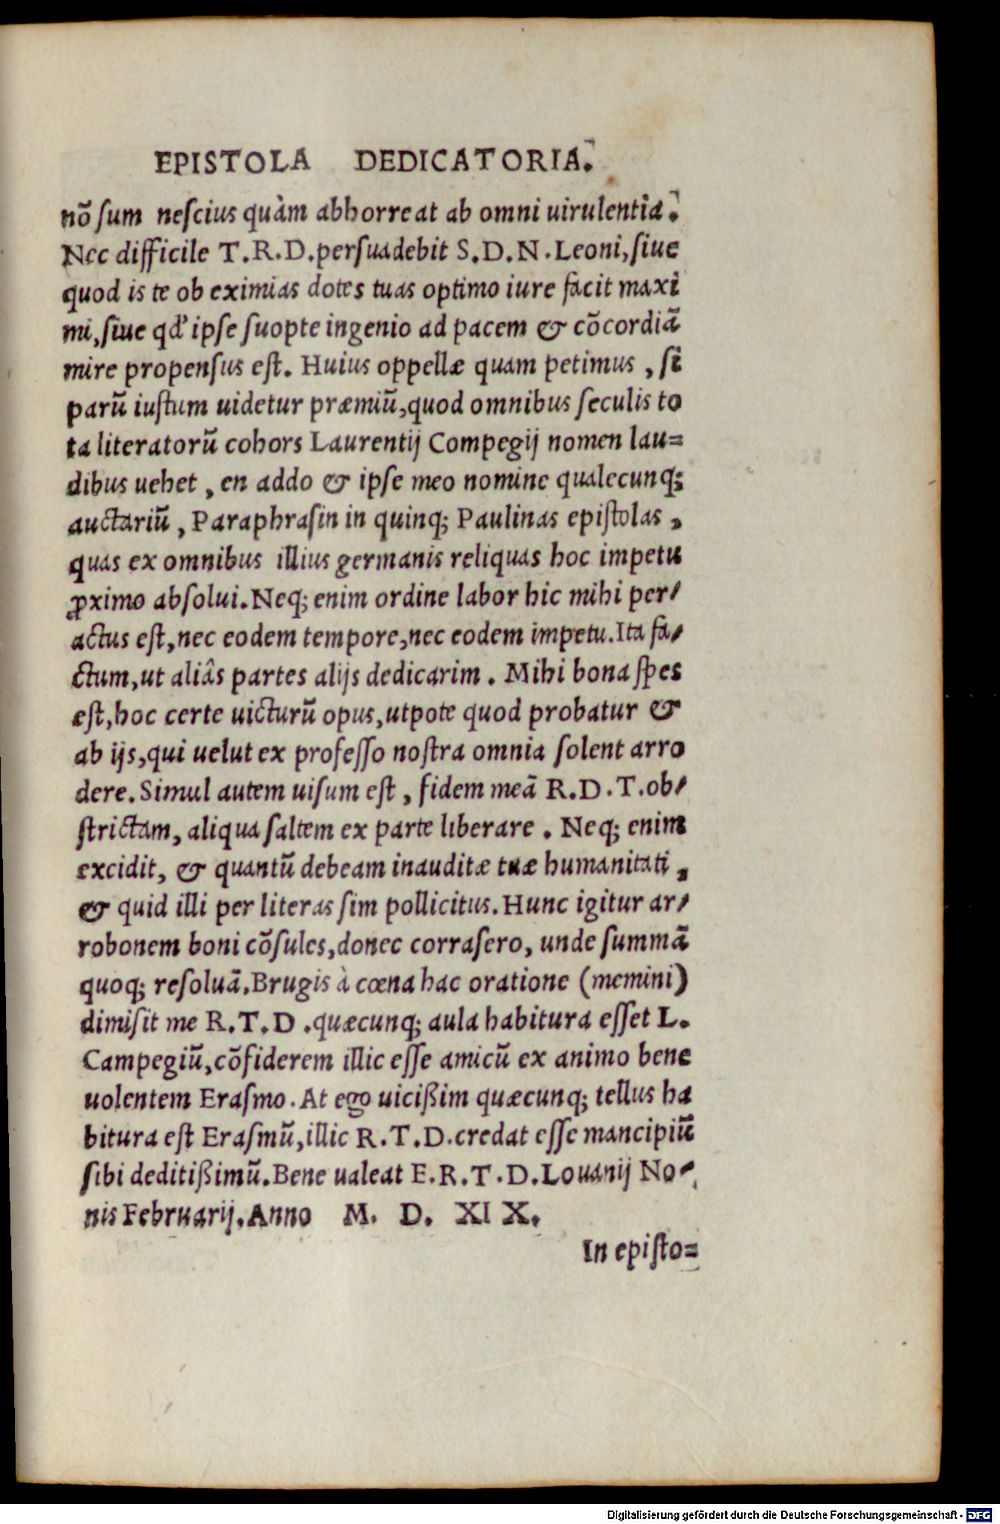 EPISTOLA DEDICATORIA.
nō sum nescius quàm abhorreat ab omni uirulentia.
Nec difficile T.R.D.persuadebit S.D.N.Leoni,siue
quod is te ob eximias dotes tuas optimo iure facit maxi
mi,siue qd' ipse suopte ingenio ad pacem & cōcordiā
mire propensus est. Huius oppellæ quam petimus, si
parū iustum uidetur præmiū,quod omnibus seculis to
ta literatorū cohors Laurentij Compegij nomen lau=
dibus uehet, en addo & ipse meo nomine qualecunq;
auctariū, Paraphrasin in quinq; Paulinas epistolas,
quas ex omnibus illius germanis reliquas hoc impetu
ꝓximo absolui.Neq; enim ordine labor hic mihi per/
actus est,nec eodem tempore,nec eodem impetu.Ita fa/
ctum,ut aliâs partes alijs dedicarim. Mihi bona spes
æst,hoc certe uicturū opus,utpote quod probatur &
ab ijs,qui uelut ex professo nostra omnia solent arro
dere.Simul autem uisum est, fidem meā R.D.T.ob/
strictam, aliqua saltem ex parte liberare. Neq; enim
excidit, & quantū debeam inauditæ tuæ humanitati,
& quid illi per literas sim pollicitus.Hunc igitur ar/
robonem boni cōsules,donec corrasero, unde summā
quoq; resoluā.Brugis à cœna hac oratione (memini)
dimisit me R.T.D.quæcunq; aula habitura esset L.
Campegiū,cōfiderem illic esse amicū ex animo bene
uolentem Erasmo.At ego uicißim quæcunq; tellus ha
bitura est Erasmū,illic R.T.D.credat esse mancipiū
sibi deditißimū.Bene ualeat E.R.T.D.Louanij No/
nis Februarij.Anno M. D. XIX.
In episto=
Digitalisierung gefördert durch die Deutsche Forschungsgemeinschaft - DFG